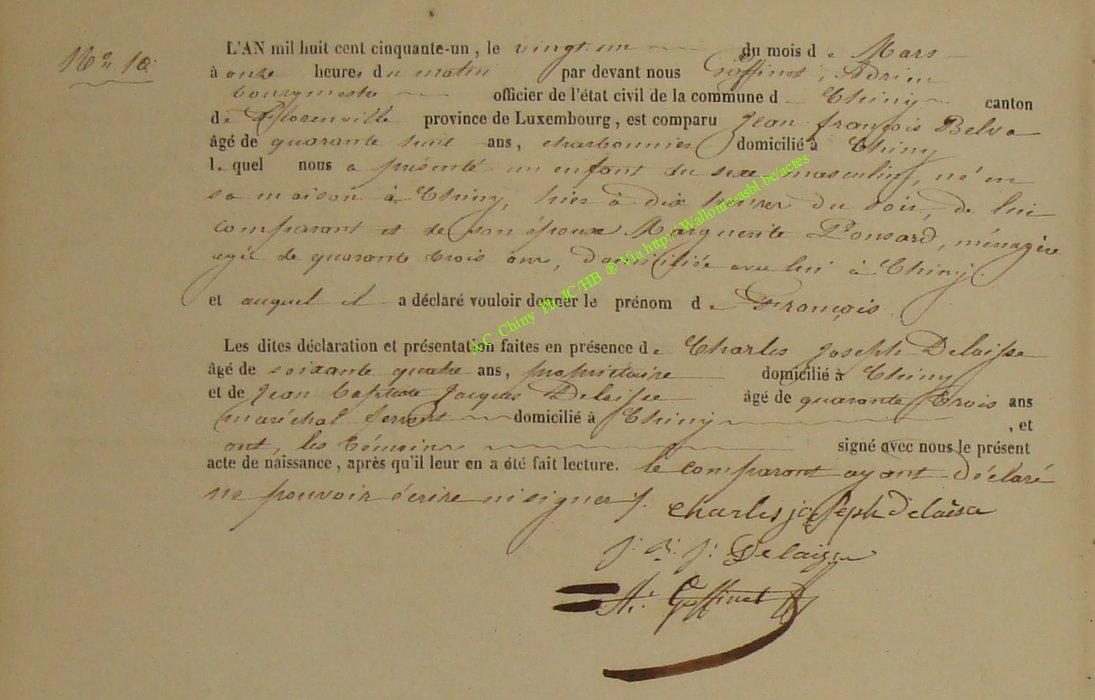 N° 10
L'AN mil huit cent cinquante-un, le vingt un du mois de Mars
à onze heures du matin par devant nous Goffinet, Adrien
bourgmestre officier de l'état civil de la commune de Chiny canton
de Florenville province de Luxembourg, est comparu Jean françois Belva
âgé de quarante huit ans, charbonnier domicilié à Chiny
lequel nous a présenté un enfant du sexe masculin, né en
sa maison à Chiny, hier à dix heures du soir, de lui
comparant et de son épouse Marguerite Ponsard, ménagère
agée de quarante trois ans, domiciliée avec lui à Chiny.
et auquel il a déclaré vouloir donner le prénom de François.
Les dites déclaration et présentation faites en présence de Charles Joseph Delaisse
âgé de soixante quatre ans, propriétaire domicilié à Chiny
et de Jean Baptiste Jacques Delaisse âgé de quarante trois ans
maréchal ferrant domicilié à Chiny, et
ont, les témoins signé avec nous le présent
acte de naissance, après qu'il leur en a été fait lecture. le comparant ayant déclaré
ne pouvoir écrire ni signer.
charles joseph Delaisse
J. B. J. Delaisse
A. Goffinet
A.C Chiny Ph JC/HB ® Via http://Wallonia-asbl.be/actes